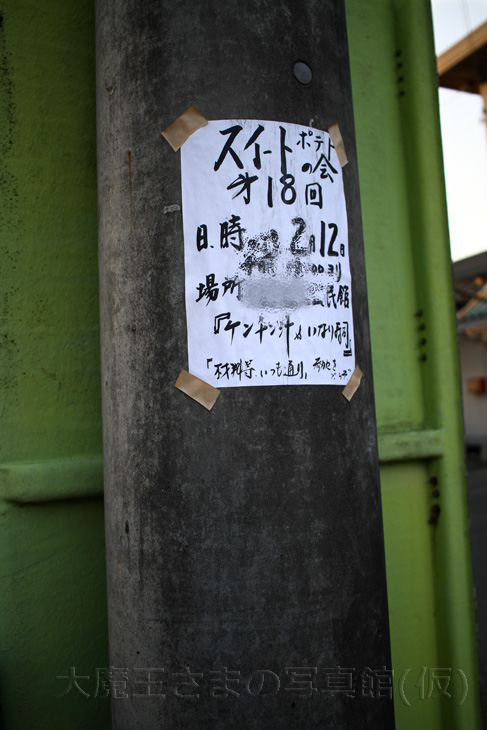 スイートポテトの会
第18回
日時 2月12日
00ヨリ
場所 民館
『ケンチン汁といなり寿司』
『材料等、いつも通り』
大魔王さまの写真館(仮)